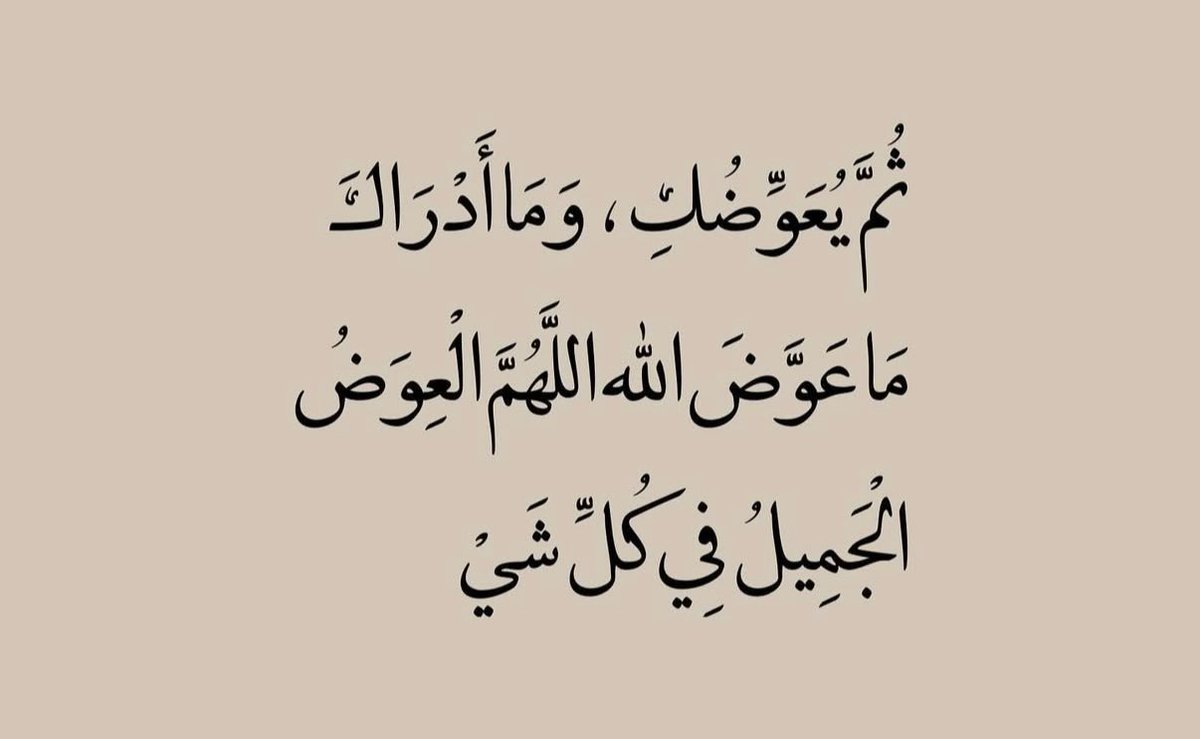 ثُمَّ يُعَوِّضُكِ، وَمَا أَدْرَاكَ
مَا عَوَّضَ الله اللَّهُمَّ الْعِوَضُ
الْجَمِيلُ فِي كُلِّ شَيْ